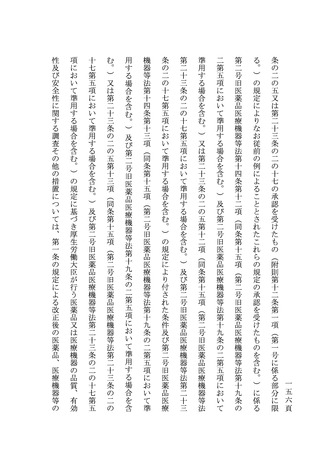 一五六頁
条の二の五又は第二十三条の二の十七の承認を受けたもの（附則第十二条第一項（第一号に係る部分に限
る。）の規定によりなお従前の例によることとされたこれらの規定の承認を受けたものを含む。）に係る
第二号旧医薬品医療機器等法第十四条第十二項（同条第十五項（第二号旧医薬品医療機器等法第十九条の
二第五項において準用する場合を含む。）及び第二号旧医薬品医療機器等法第十九条の二第五項において
準用する場合を含む。）又は第二十三条の二の五第十二項（同条第十五項（第二号旧医薬品医療機器等法
第二十三条の二の十七第五項において準用する場合を含む。）及び第二号旧医薬品医療機器等法第二十三
条の二の十七第五項において準用する場合を含む。）の規定により付された条件及び第二号旧医薬品医療
機器等法第十四条第十三項（同条第十五項（第二号旧医薬品医療機器等法第十九条の二第五項において準
用する場合を含む。）及び第二号旧医薬品医療機器等法第十九条の二第五項において準用する場合を含
む。）又は第二十三条の二の五第十三項（同条第十五項（第二号旧医薬品医療機器等法第二十三条の二の
十七第五項において準用する場合を含む。）及び第二号旧医薬品医療機器等法第二十三条の二の十七第五
項において準用する場合を含む。）の規定に基づき厚生労働大臣が行う医薬品又は医療機器の品質、有効
性及び安全性に関する調査その他の措置については、第一条の規定による改正後の医薬品、医療機器等の